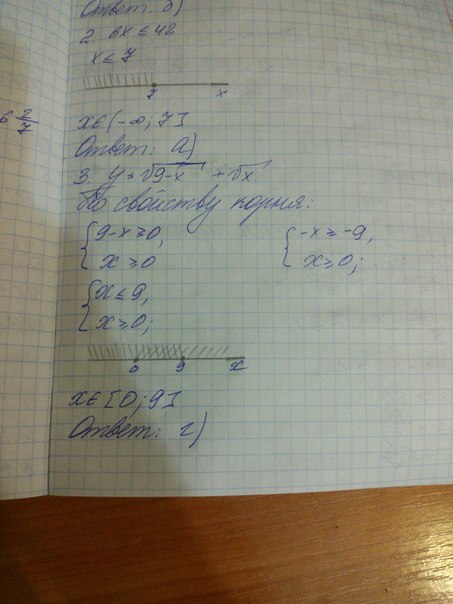 Ответ: б)
2. 6x ≤ 42
x ≤ 7
7 x
6 2/7
x∈(-∞; 7]
Ответ: а)
3. y = √9-x + √x
По свойству корня:
{ 9-x ≥ 0, { -x ≥ -9,
x ≥ 0 x ≥ 0;
{ x ≤ 9,
x ≥ 0;
0 9 x
x∈[0; 9]
Ответ: г)